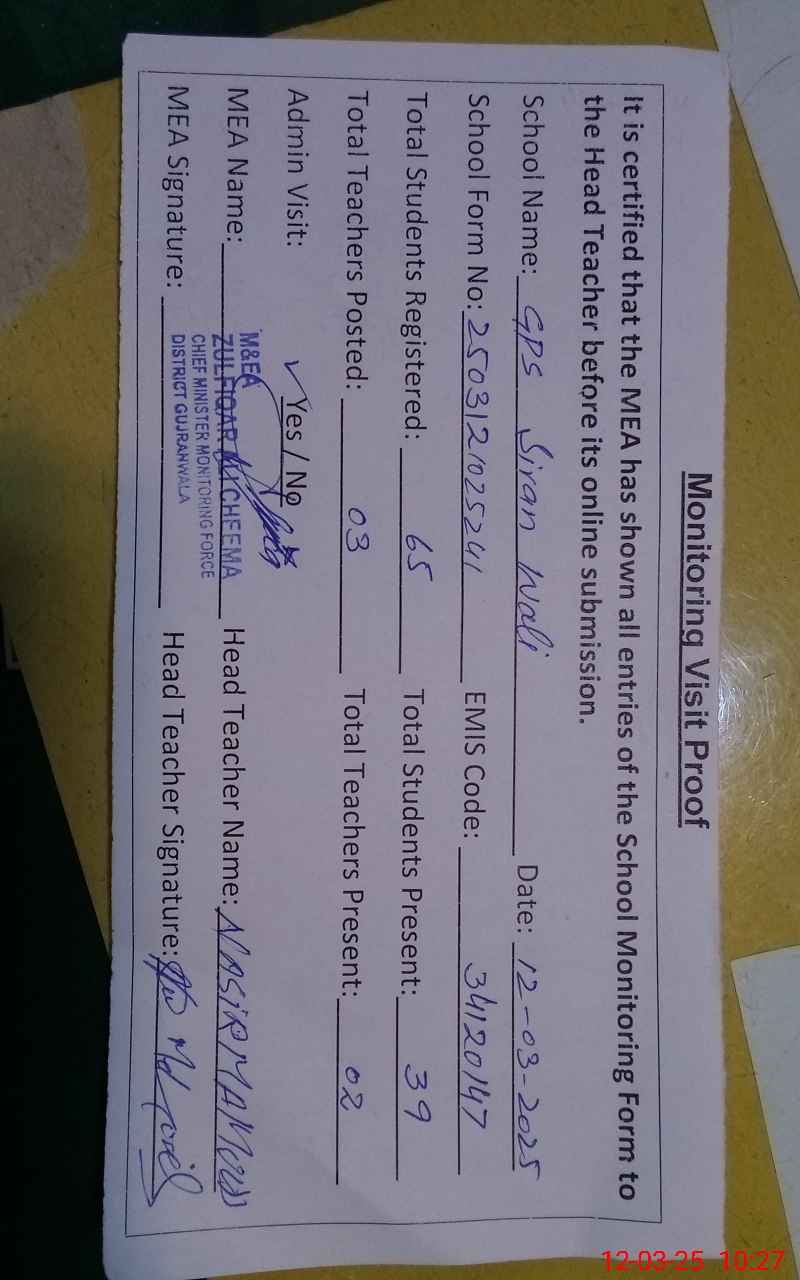 Monitoring Visit Proof
It is certified that the MEA has shown all entries of the School Monitoring Form to
the Head Teacher before its online submission.
School Name: GPS Siran Wali Date: 12-03-2025
School Form No: 2503121025241 EMIS Code: 34120147
Total Students Registered: 65 Total Students Present: 39
Total Teachers Posted: 03 Total Teachers Present: 02
Admin Visit: ✓ Yes / No
M&EA
MEA Name: ZULFIQAR CHEEMA Head Teacher Name: NASIR MAHMOOD
CHIEF MINISTER MONITORING FORCE
MEA Signature: DISTRICT GUJRANWALA Head Teacher Signature:
12-03-25 10:27